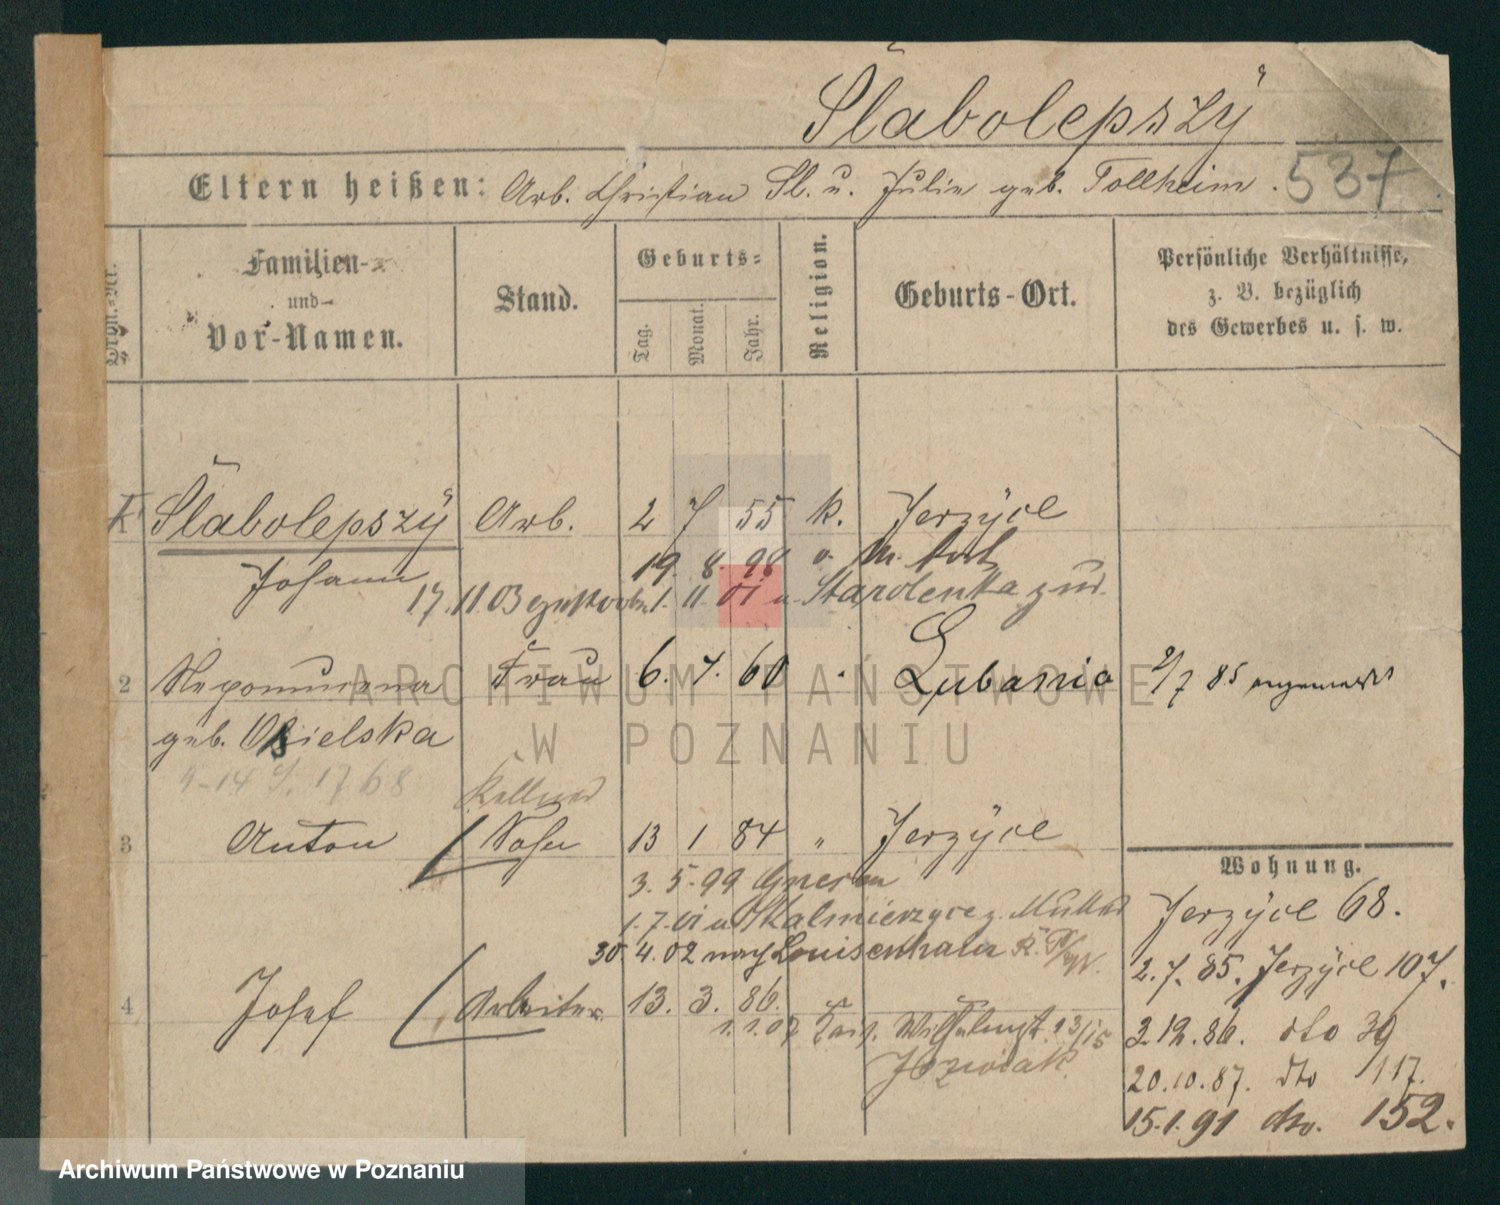 Slabolepszÿ
Eltern heißen: Arb. Christian Sl. u. Julie geb. Tollheim.
537
Ordn.-Nr.
Familien-
und
Vor-Namen.
Stand.
Geburts-
Tag.
Monat.
Jahr.
Religion.
Geburts-Ort.
Persönliche Verhältnisse,
z. B. bezüglich
des Gewerbes u. s. w.
1 Slabolepszÿ Arb. 2 7 55 k. Jerzÿce
Johann
19. 8. 98
17.11.03 1. 11. 01 u. Starolenka zur.
2 Nepomucena Frau 6. 4. 60 Lubania 2/7 85 angemeldet
geb. Osielska
Kellner
3 Anton Sohn 13 1 84 " Jerzÿce
3. 5. 99 Gnesen
Wohnung.
1.7.01 u. z. Mutter
Jerzÿce 68.
30. 4. 02 nach Louisenhain
2.7.85. Jerzÿce 107.
4 Josef Arbeiter 13. 3. 86.
1.1.07 13/15
3.12.86. dto 39
Jozwiak
20.10.87. dto 117.
15.1.91 dto. 152.
ARCHIWUM PAŃSTWOWE
W POZNANIU
Archiwum Państwowe w Poznaniu